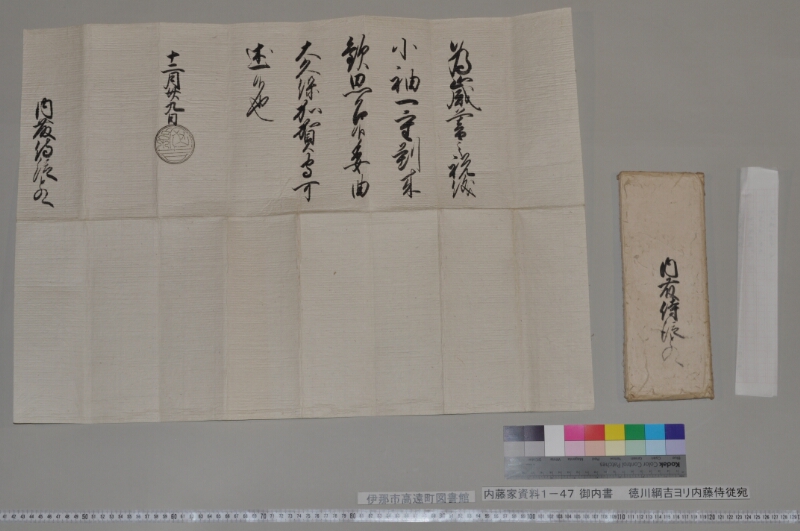 為歳暮之祝儀
小袖一重到来
歓思召候委曲
大久保加賀守可
述候也
十二月廿九日
内藤侍従殿
内藤侍従殿
伊那市高遠町図書館
内藤家資料1－47 御内書 徳川綱吉ヨリ内藤侍従宛
Kodak